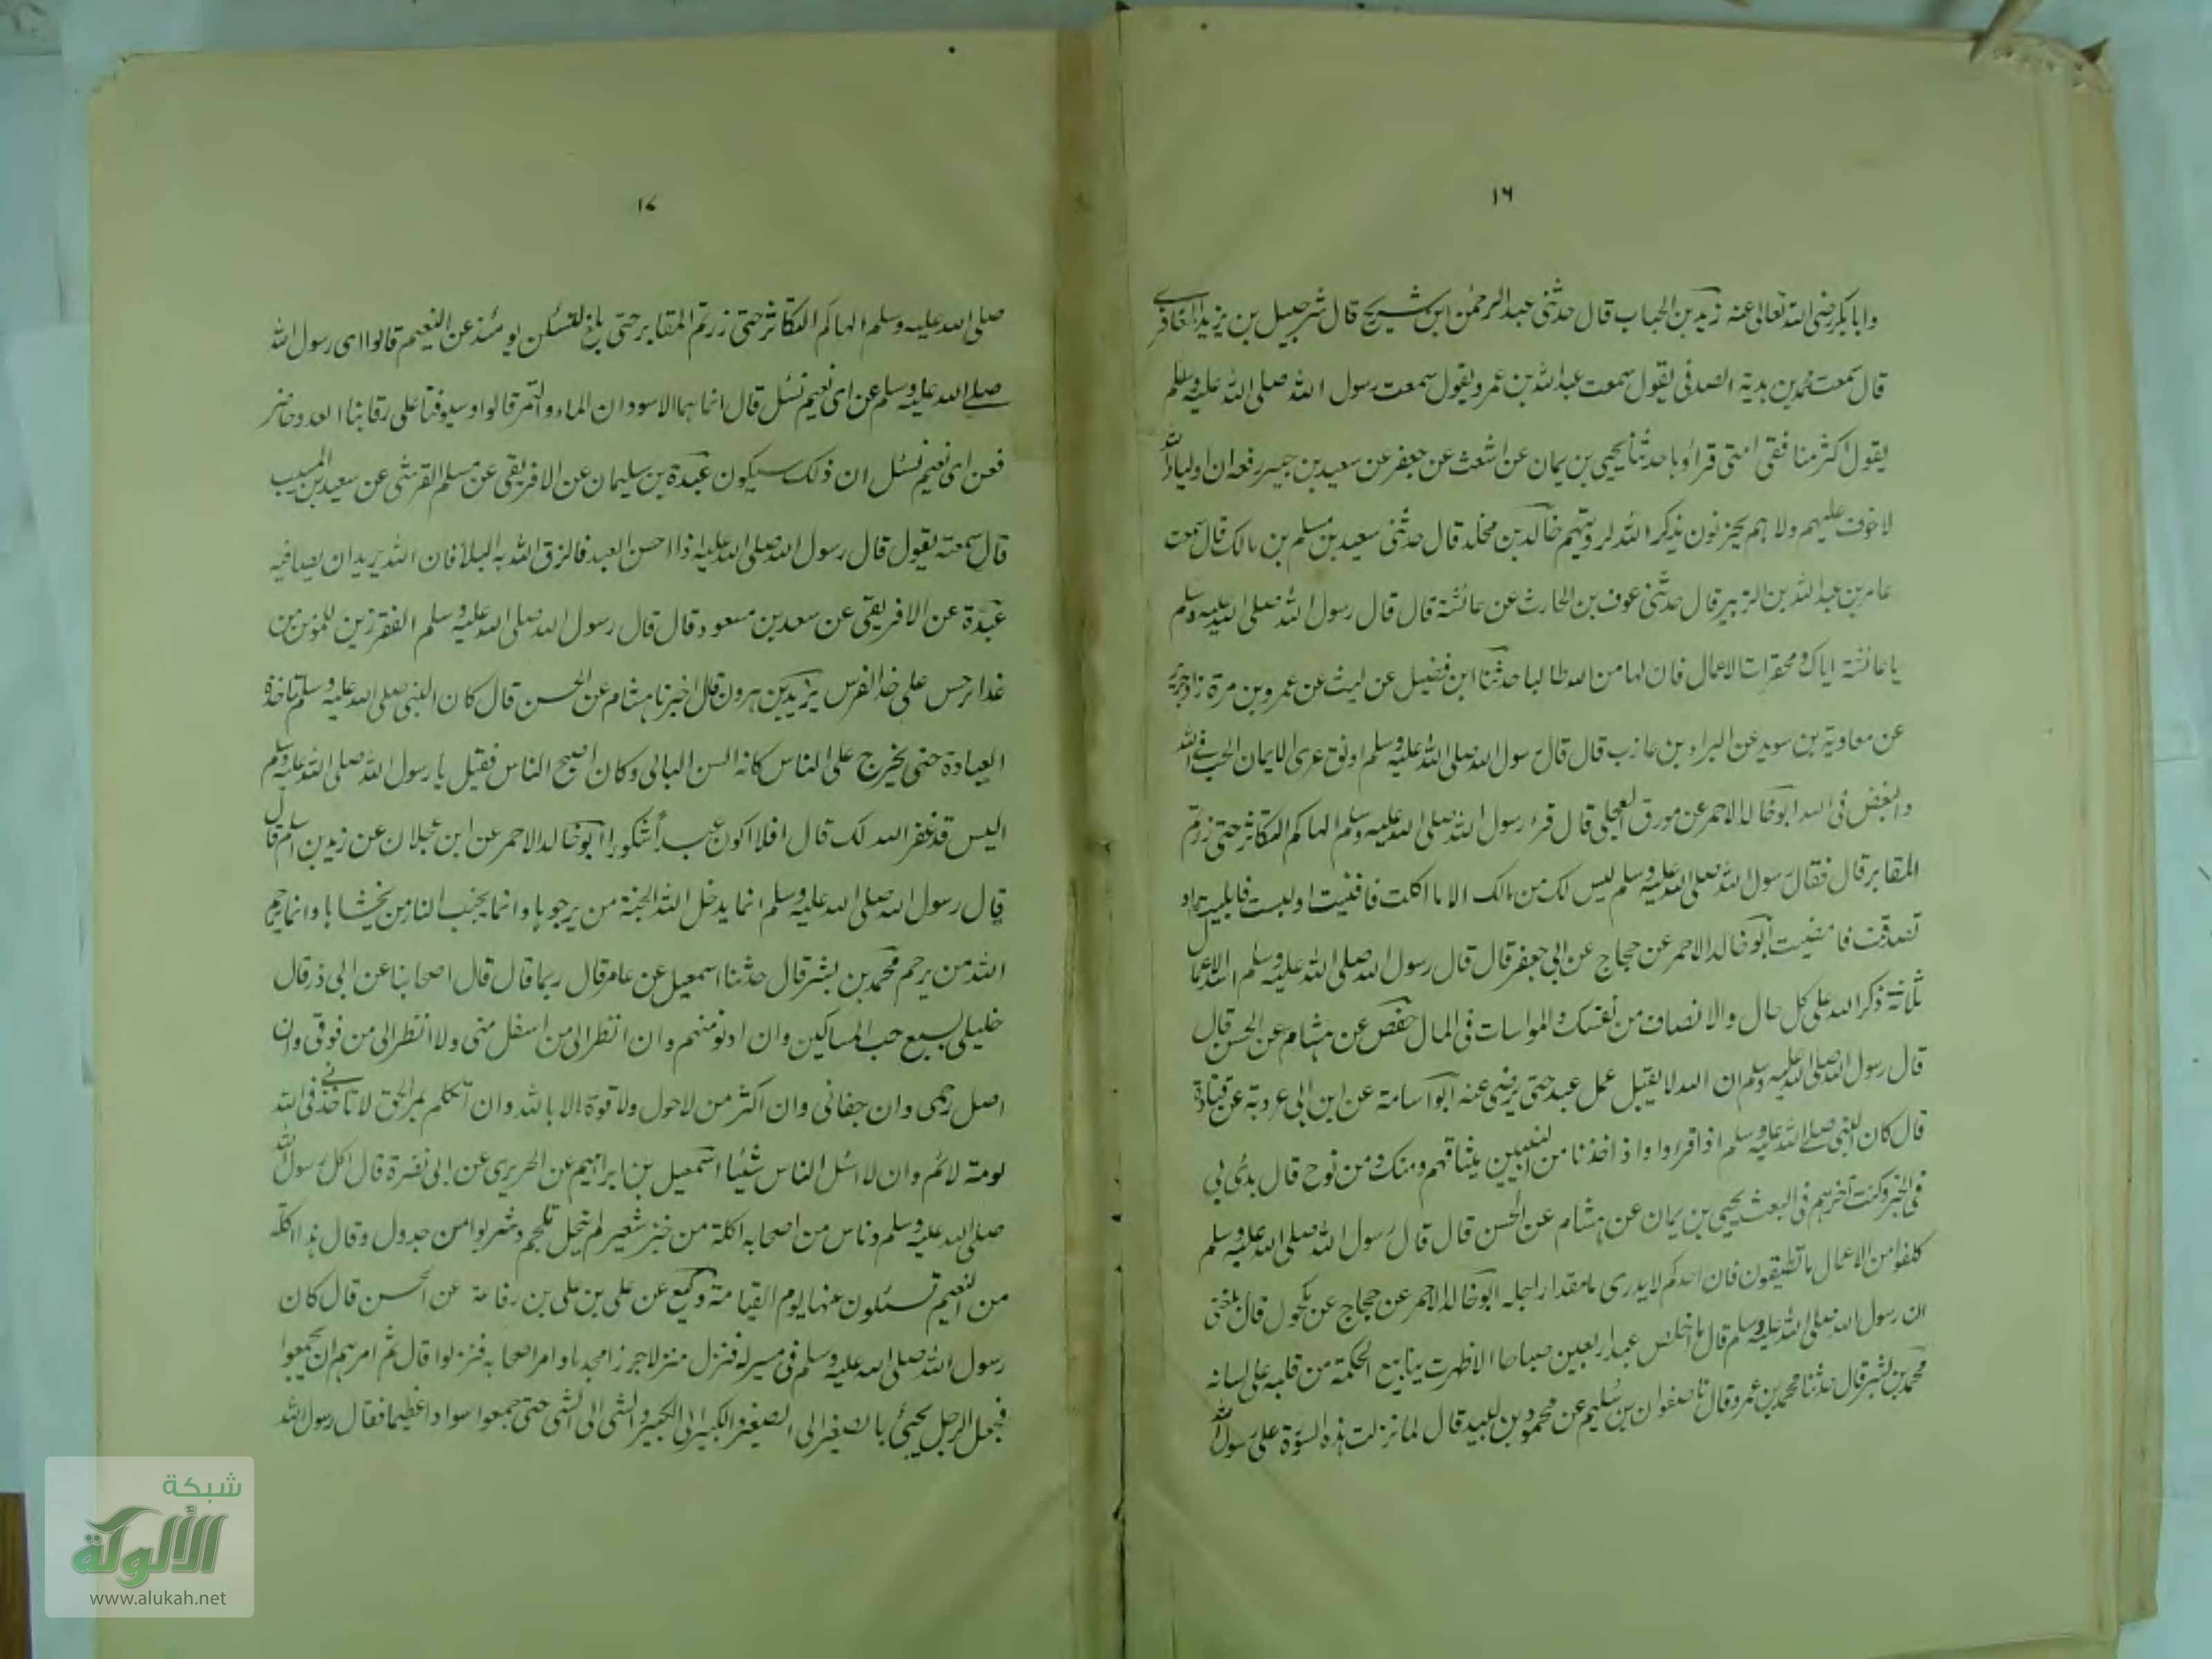 ١٦
وابا بكر رضى الله تعالى عنه زيد بن الحباب قال حدثنى عبد الرحمٰن ابن شريح قال شرحبيل بن يزيد المغافرى
قال سمعت محمد بن هدية الصدفى يقول سمعت عبد الله بن عمر و يقول سمعت رسول الله صلى الله عليه وسلم
يقول اكثر منافقى امتى قراؤها حدثنا يحيى بن يمان عن اشعث عن جعفر عن سعيد بن جبير رفعه ان اولياء الله
لا خوف عليهم ولا هم يحزنون يذكر الله لرويتهم خالد بن مخلد قال حدثنى سعيد بن مسلم بن مالك قال سمعت
عامر بن عبد الله بن الزبير قال حدثنى عوف بن الحارث عن عائشة قال قال رسول الله صلى الله عليه وسلم
يا عائشة اياك ومحقرات الاعمال فان لها من الله طالبا حدثنا ابن فضيل عن ليث عن عمرو بن مرة
عن معاوية بن سويد عن البراء بن عازب قال قال رسول الله صلى الله عليه وسلم اوثق عرى الايمان الحب فى الله
والبغض فى الله ابو خالد الاحمر عن مورق العجلى قال قرء رسول الله صلى الله عليه وسلم الهاكم التكاثر حتى زرتم
المقابر قال فقال رسول الله صلى الله عليه وسلم ليس لك من مالك الا ما اكلت فافنيت او لبست فابليت او
تصدقت فامضيت ابو خالد الاحمر عن حجاج عن ابى جعفر قال قال رسول الله صلى الله عليه وسلم اشد الاعمال
ثلاثة ذكر الله على كل حال والانصاف من نفسك والمواسات فى المال حفص عن هشام عن الحسن قال
قال رسول الله صلى الله عليه وسلم ان الله لا يقبل عمل عبد حتى يرضى عنه ابو اسامة عن ابن ابى عروبة عن قتادة
قال كان النبى صلے الله عليه وسلم اذا قراوا واذ اخذنا من النبيين ميثاقهم ومنك ومن نوح قال بدئ بى
فى الخير وكنت آخرهم فى البعث يحيى بن يمان عن هشام عن الحسن قال قال رسول الله صلى الله عليه وسلم
كلفوا من الاعمال ما تطيقون فان احدكم لا يدرى ما مقدار اجله ابو خالد الاحمر عن حجاج عن مكحول قال بلغنى
ان رسول الله صلى الله عليه وسلم قال ما اخلص عبد اربعين صباحا الا ظهرت ينابيع الحكمة من قلبه على لسانه
محمد بن بشر قال حدثنا محمد بن عمرو قال نا صفوان بن سليم عن محمود بن لبيد قال لما نزلت هذه السورة على رسول الله
١٧
صلى الله عليه وسلم الهاكم التكاثر حتى زرتم المقابر حتى بلغ لتسئلن يومئذ عن النعيم قالوا اى رسول الله
صلے الله عليه وسلم عن اى نعيم نسئل قال انما هما الاسودان الماء والتمر قالوا وسيوفنا على رقابنا العدو حاضر
فعن اى نعيم نسئل ان ذلك سيكون عبدة بن سليمان عن الافريقى عن مسلم القرشى عن سعيد بن المسيب
قال سمعته يقول قال رسول الله صلى الله عليه اذا احسن العبد فالزق الله به البلاء فان الله يريد ان يصافيه
عبدة عن الافريقى عن سعد بن مسعود قال قال رسول الله صلى الله عليه وسلم الفقر زين للمؤمن من
عذار حسن على خد الفرس يزيد بن هرون قال اخبرنا هشام عن الحسن قال كان النبى صلى الله عليه وسلم تاخذه
العبادة حتى يخرج على الناس كانه الشن البالى وكان اصبح الناس فقيل يا رسول الله صلى الله عليه وسلم
اليس قد غفر الله لك قال افلا اكون عبدا شكورا ابو خالد الاحمر عن ابن عجلان عن زيد بن اسلم قال
قال رسول الله صلى الله عليه وسلم انما يدخل الله الجنة من يرجوها وانما يجنب النار من يخشاها وانما يرحم
الله من يرحم محمد بن بشر قال حدثنا اسمعيل عن عامر قال ربما قال قال اصحابنا عن ابى ذر قال
خليلى بسبع حب المساكين وان ادنو منهم وان انظر الى من اسفل منى ولا انظر الى من فوقى وان
اصل رحمى وان جفانى وان اكثر من لاحول ولا قوة الا بالله وان اتكلم بمر الحق لا تاخذنے فى الله
لومة لائم وان لا اسئل الناس شيئا اسمعيل بن ابراهيم عن الجريرى عن ابى نضرة قال اكل رسول الله
صلى الله عليه وسلم وناس من اصحابه اكلة من خبز شعير لم ينخل بلحم وشربوا من جدول وقال هذا اكلة
من النعيم تسئلون عنها يوم القيامة وكيع عن على بن على بن رفاعة عن الحسن قال كان
رسول الله صلى الله عليه وسلم فى مسير له فنزل منزلا جرزا مجدبا وامر اصحابه فنزلوا قال ثم امرهم ان يجمعوا
فجعل الرجل يجئ بالصغير الى الصغير والكبير الى الكبير والشى الى الشى حتى جمعوا سوادا عظيما فقال رسول الله
شبكة
الألوكة
www.alukah.net